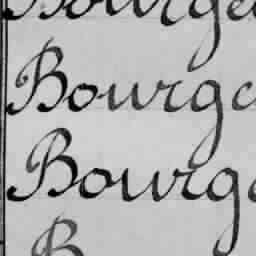 Bourge
Bourge
Bourg
B